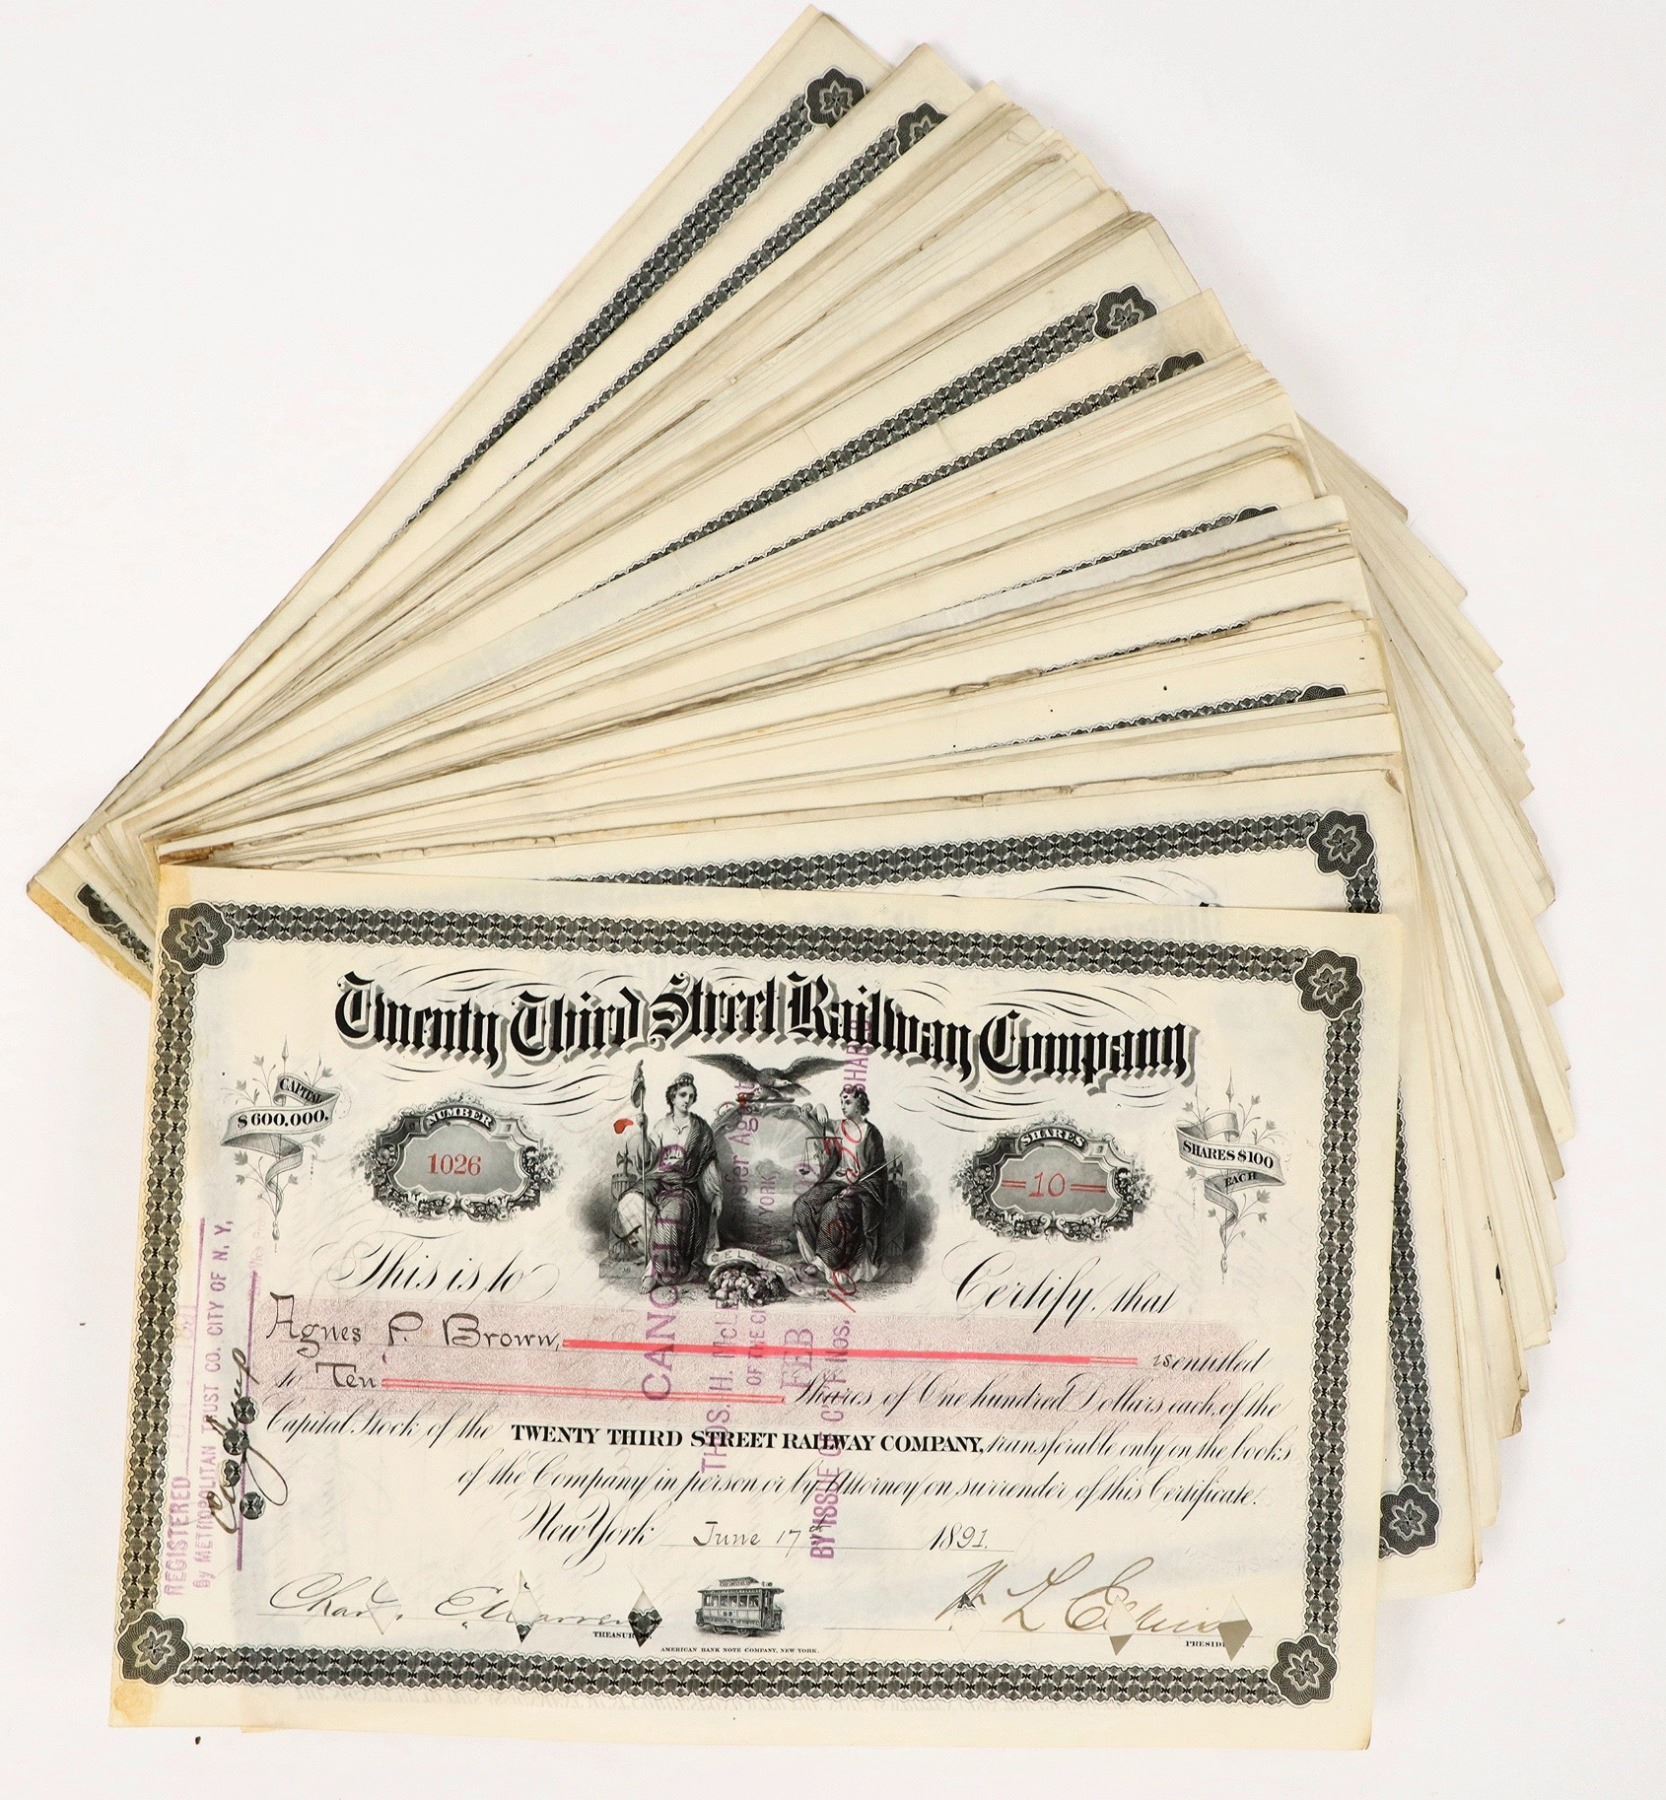 Twenty Third Street Railway Company
CAPITAL
$600,000.
NUMBER
1026
SHARES
10
SHARES $100
EACH
This is to Certify, that
Agnes P. Brown, is entitled
to Ten Shares of One hundred Dollars each, of the
Capital Stock of the TWENTY THIRD STREET RAILWAY COMPANY, transferable only on the books
of the Company in person or by Attorney on surrender of this Certificate.
New York June 17th 1891.
TREASURER.
AMERICAN BANK NOTE COMPANY, NEW YORK.
PRESIDENT
REGISTERED
By METROPOLITAN TRUST CO. CITY OF N. Y,
CANCELLED
THOS. H. McL
OF THE CI
FEB
BY ISSUE OF CT'F NOS.